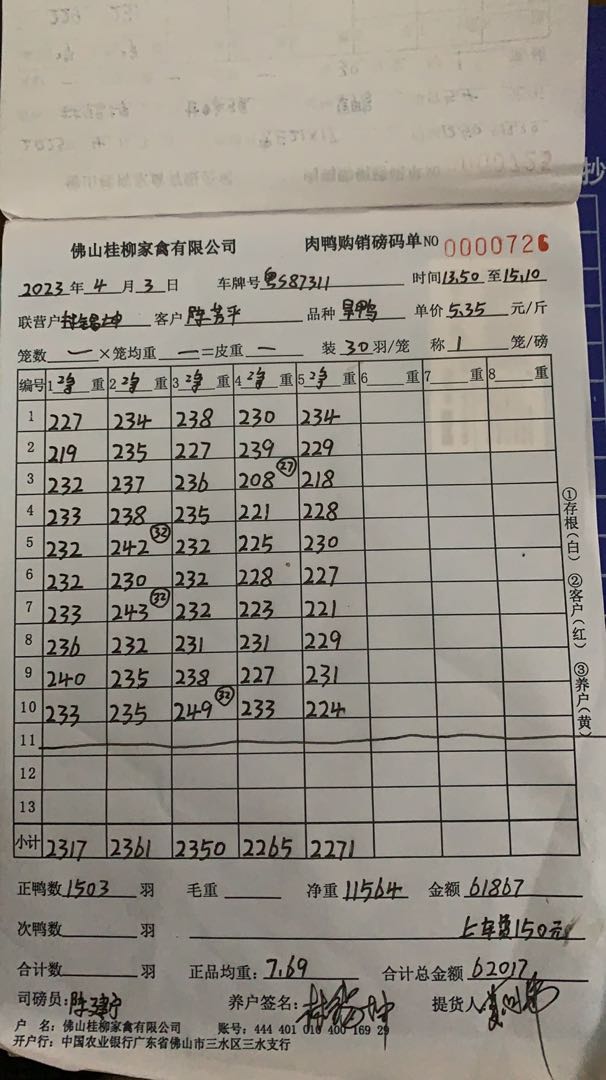 佛山桂柳家禽有限公司 肉鸭购销磅码单 NO 0000726
2023年4月3日 车牌号 粤S87311 时间13.50至15.10
联营户 客户 陈芳平 品种 旱鸭 单价5.35元/斤
笼数 一 ×笼均重 一 =皮重 一 装30羽/笼 称1笼/磅
编号 1净重 2净重 3净重 4净重 5净重 6 重 7 重 8 重
1 227 234 238 230 234
2 219 235 227 239 229
3 232 237 236 208 (27) 218
4 233 238 235 221 228
5 232 242 (32) 232 225 230
6 232 230 232 228 227
7 233 243 (32) 232 223 221
8 236 232 231 231 229
9 240 235 238 227 231
10 233 235 249 (32) 233 224
11
12
13
小计 2317 2361 2350 2265 2271
①存根(白) ②客户(红) ③养户(黄)
正鸭数1503羽 毛重 净重11564 金额61867
次鸭数 羽 上车费150元
合计数 羽 正品均重:7.69 合计总金额62017
司磅员: 养户签名: 提货人:
户 名: 佛山桂柳家禽有限公司 账号: 444 401 010 400 169 29
开户行: 中国农业银行广东省佛山市三水区三水支行
抄